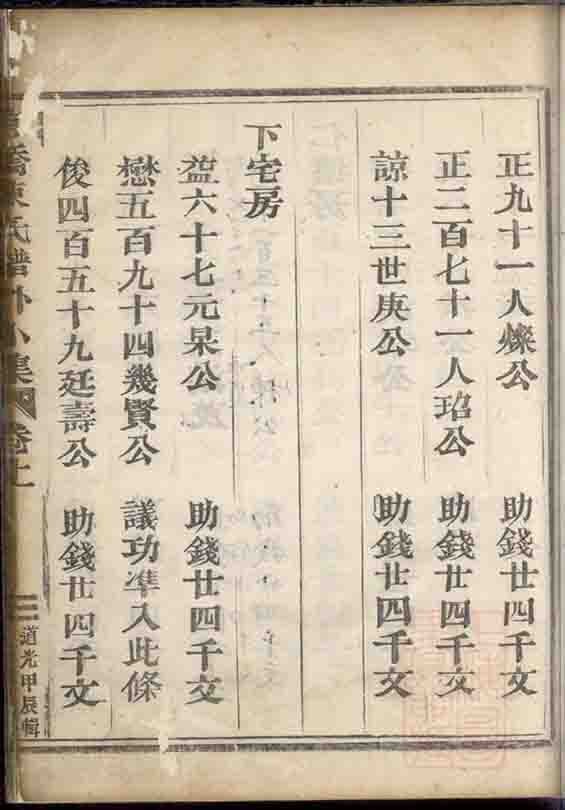 正九十一人燦公 助錢廿四千文
正二百七十一人玿公 助錢廿四千文
諒十三世庚公 助錢廿四千文
下宅房
益六十七元杲公 助錢廿四千文
懋五百九十四幾賢公 議功準入此條
俊四百五十九廷壽公 助錢廿四千文
橋陳氏譜外小集 卷上 三 道光甲辰輯